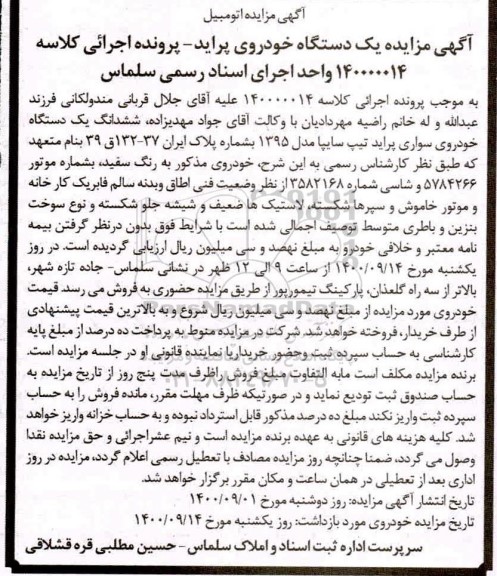 آگهی مزایده اتومبیل
آگهی مزایده یک دستگاه خودروی پراید- پرونده اجرائی کلاسه
۱۴۰۰۰۰۰۱۴ واحد اجرای اسناد رسمی سلماس
به موجب پرونده اجرائی کلاسه ۱۴۰۰۰۰۰۱۴ علیه آقای جلال قربانی مندولکانی فرزند
عبدالله و له خانم راضیه مهردادیان با وکالت آقای جواد مهدیزاده، ششدانگ یک دستگاه
خودروی سواری پراید تیپ سایپا مدل ۱۳۹۵ بشماره پلاک ایران ۳۷-۱۳۲ق ۳۹ بنام متعهد
که طبق نظر کارشناس رسمی به این شرح، خودروی مذکور به رنگ سفید، بشماره موتور
۵۷۸۴۲۶۶ و شاسی شماره ۳۵۸۲۱۶۸ از نظر وضعیت فنی اطاق وبدنه سالم فابریک کار خانه
و موتور خاموش و سپرها شکسته، لاستیک ها ضعیف و شیشه جلو شکسته و نوع سوخت
بنزین و باطری متوسط توصیف اجمالی شده است با شرایط فوق بدون درنظر گرفتن بیمه
نامه معتبر و خلافی خودرو به مبلغ نهصد و سی میلیون ریال ارزیابی گردیده است. در روز
یکشنبه مورخ ۱۴۰۰/۰۹/۱۴ از ساعت ۹ الی ۱۲ ظهر در نشانی سلماس- جاده تازه شهر،
بالاتر از سه راه گلعذان، پارکینگ تیمورپور از طریق مزایده حضوری به فروش می رسد. قیمت
خودروی مورد مزایده از مبلغ نهصد و سی میلیون ریال شروع و به بالاترین قیمت پیشنهادی
از طرف خریدار، فروخته خواهد شد. شرکت در مزایده منوط به پرداخت ده درصد از مبلغ پایه
کارشناسی به حساب سپرده ثبت وحضور خریداریا نماینده قانونی او در جلسه مزایده است.
برنده مزایده مکلف است مابه التفاوت مبلغ فروش راظرف مدت پنج روز از تاریخ مزایده به
حساب صندوق ثبت تودیع نماید و در صورتیکه ظرف مهلت مقرر، مانده فروش را به حساب
سپرده ثبت واریز نکند مبلغ ده درصد مذکور قابل استرداد نبوده و به حساب خزانه واریز خواهد
شد. کلیه هزینه های قانونی به عهده برنده مزایده است و نیم عشراجرائی و حق مزایده نقدا
وصول می گردد، ضمنا چنانچه روز مزایده مصادف با تعطیل رسمی اعلام گردد، مزایده در روز
اداری بعد از تعطیلی در همان ساعت و مکان مقرر برگزار خواهد شد.
تاریخ انتشار آگهی مزایده: روز دوشنبه مورخ ۱۴۰۰/۰۹/۰۱
تاریخ مزایده خودروی مورد بازداشت: روز یکشنبه مورخ ۱۴۰۰/۰۹/۱۴
سرپرست اداره ثبت اسناد و املاک سلماس- حسین مطلبی قره قشلاقی